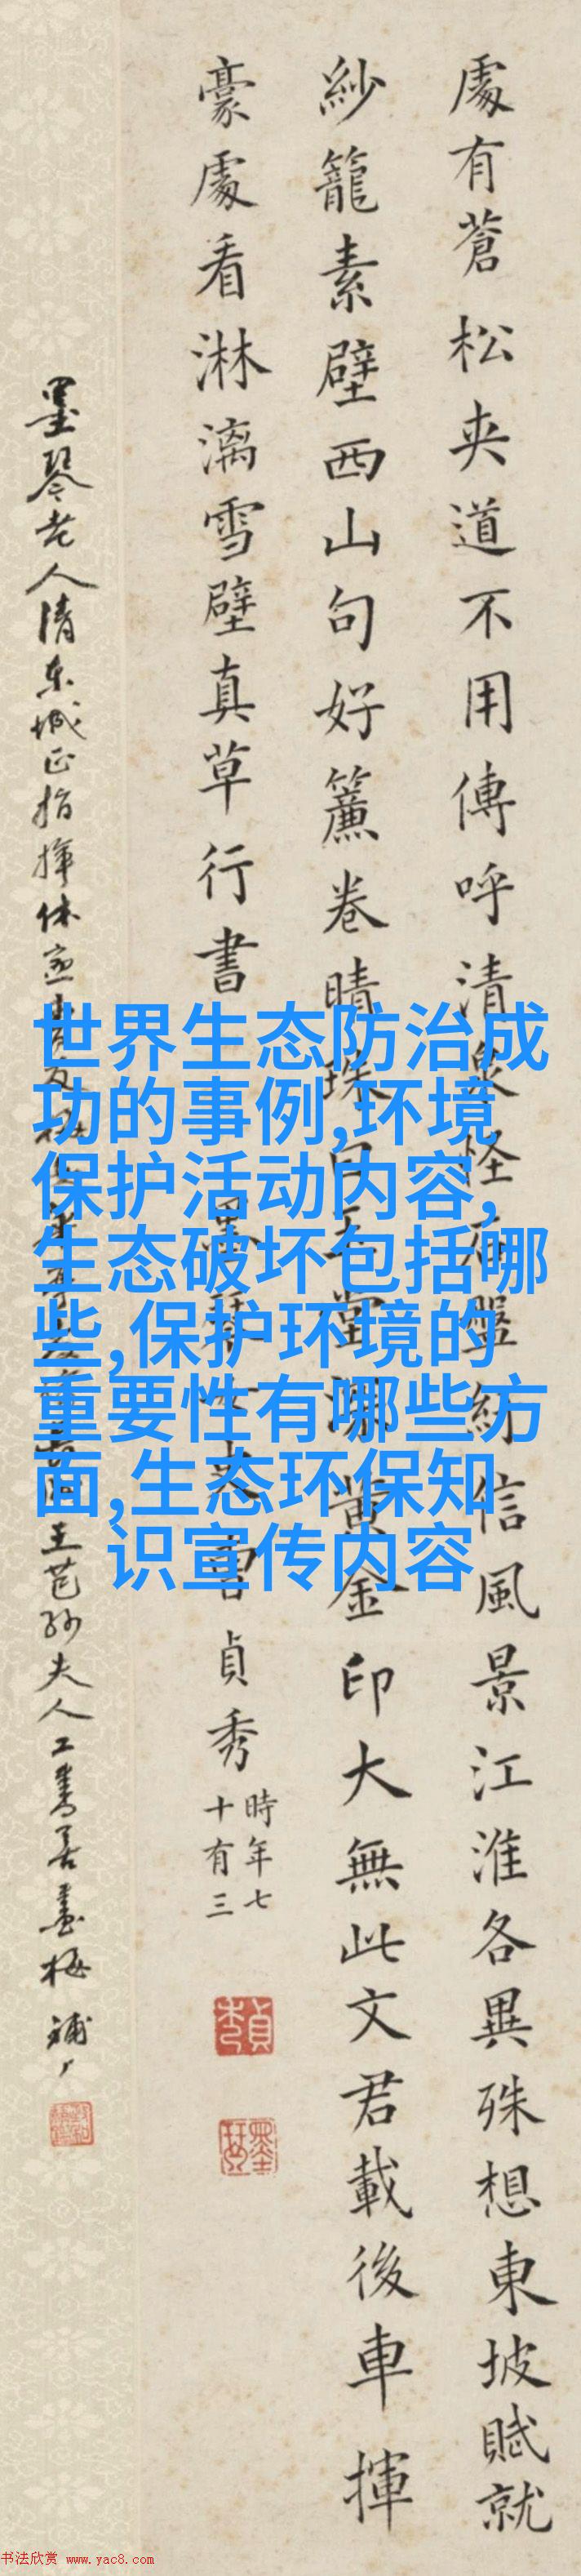 處有蒼松夾道不用傳呼清泉怪石盤紆信風景江淮各異殊想東坡賦就
紗籠素壁西山句好簾卷晴珠白玉堂深黃金印大無此文君載後車揮
豪處看淋漓雪壁真草行書
墨琴女史曹貞秀
時年七
十有三
貞秀
墨琴
墨琴老人清東城正指揮休
王芑孫夫人工書善畫梅
世界生态防治成
功的事例,环境
保护活动内容,
生态破坏包括哪
些,保护环境的
重要性有哪些方
面,生态环保知
识宣传内容
书法欣赏 www.yac8.com